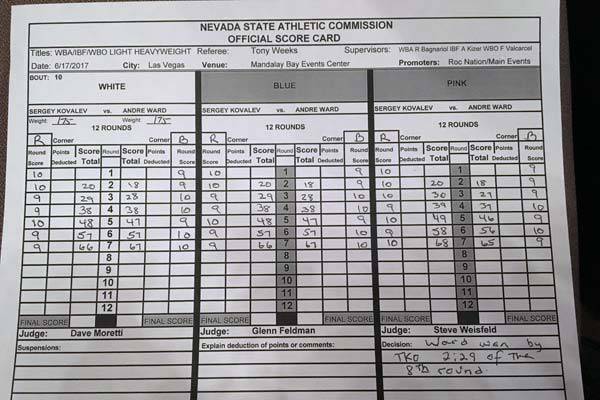 NEVADA STATE ATHLETIC COMMISSION
OFFICIAL SCORE CARD
Titles: WBA/IBF/WBO LIGHT HEAVYWEIGHT Referee: Tony Weeks Supervisors: WBA R Bagnariol IBF A Kizer WBO F Valcarcel
Date: 6/17/2017 City: Las Vegas Venue: Mandalay Bay Events Center Promoters: Roc Nation/Main Events
BOUT: 10
WHITE BLUE PINK
SERGEY KOVALEV vs. ANDRE WARD SERGEY KOVALEV vs. ANDRE WARD SERGEY KOVALEV vs. ANDRE WARD
Weight: 175 Weight: 175
12 ROUNDS 12 ROUNDS 12 ROUNDS
R Corner Corner B R Corner Corner B R Corner Corner B
Round Points Score Round Score Points Round Round Points Score Round Score Points Round Round Points Score Round Score Points Round
Score Deducted Total Total Deducted Score Score Deducted Total Total Deducted Score Score Deducted Total Total Deducted Score
10 1 9 10 1 9 10 1 9
10 20 2 18 9 10 20 2 18 9 10 20 2 18 9
9 29 3 28 10 9 29 3 28 10 10 30 3 27 9
9 38 4 38 10 9 38 4 38 10 9 39 4 37 10
10 48 5 47 9 10 48 5 47 9 10 49 5 46 9
9 57 6 57 10 9 57 6 57 10 9 58 6 56 10
9 66 7 67 10 9 66 7 67 10 10 68 7 65 9
8 8 8
9 9 9
10 10 10
11 11 11
12 12 12
FINAL SCORE FINAL SCORE FINAL SCORE FINAL SCORE FINAL SCORE FINAL SCORE
Judge: Dave Moretti Judge: Glenn Feldman Judge: Steve Weisfeld
Suspensions: Explain deduction of points or comments: Decision: Ward won by
TKO 2:29 of the
8th round.